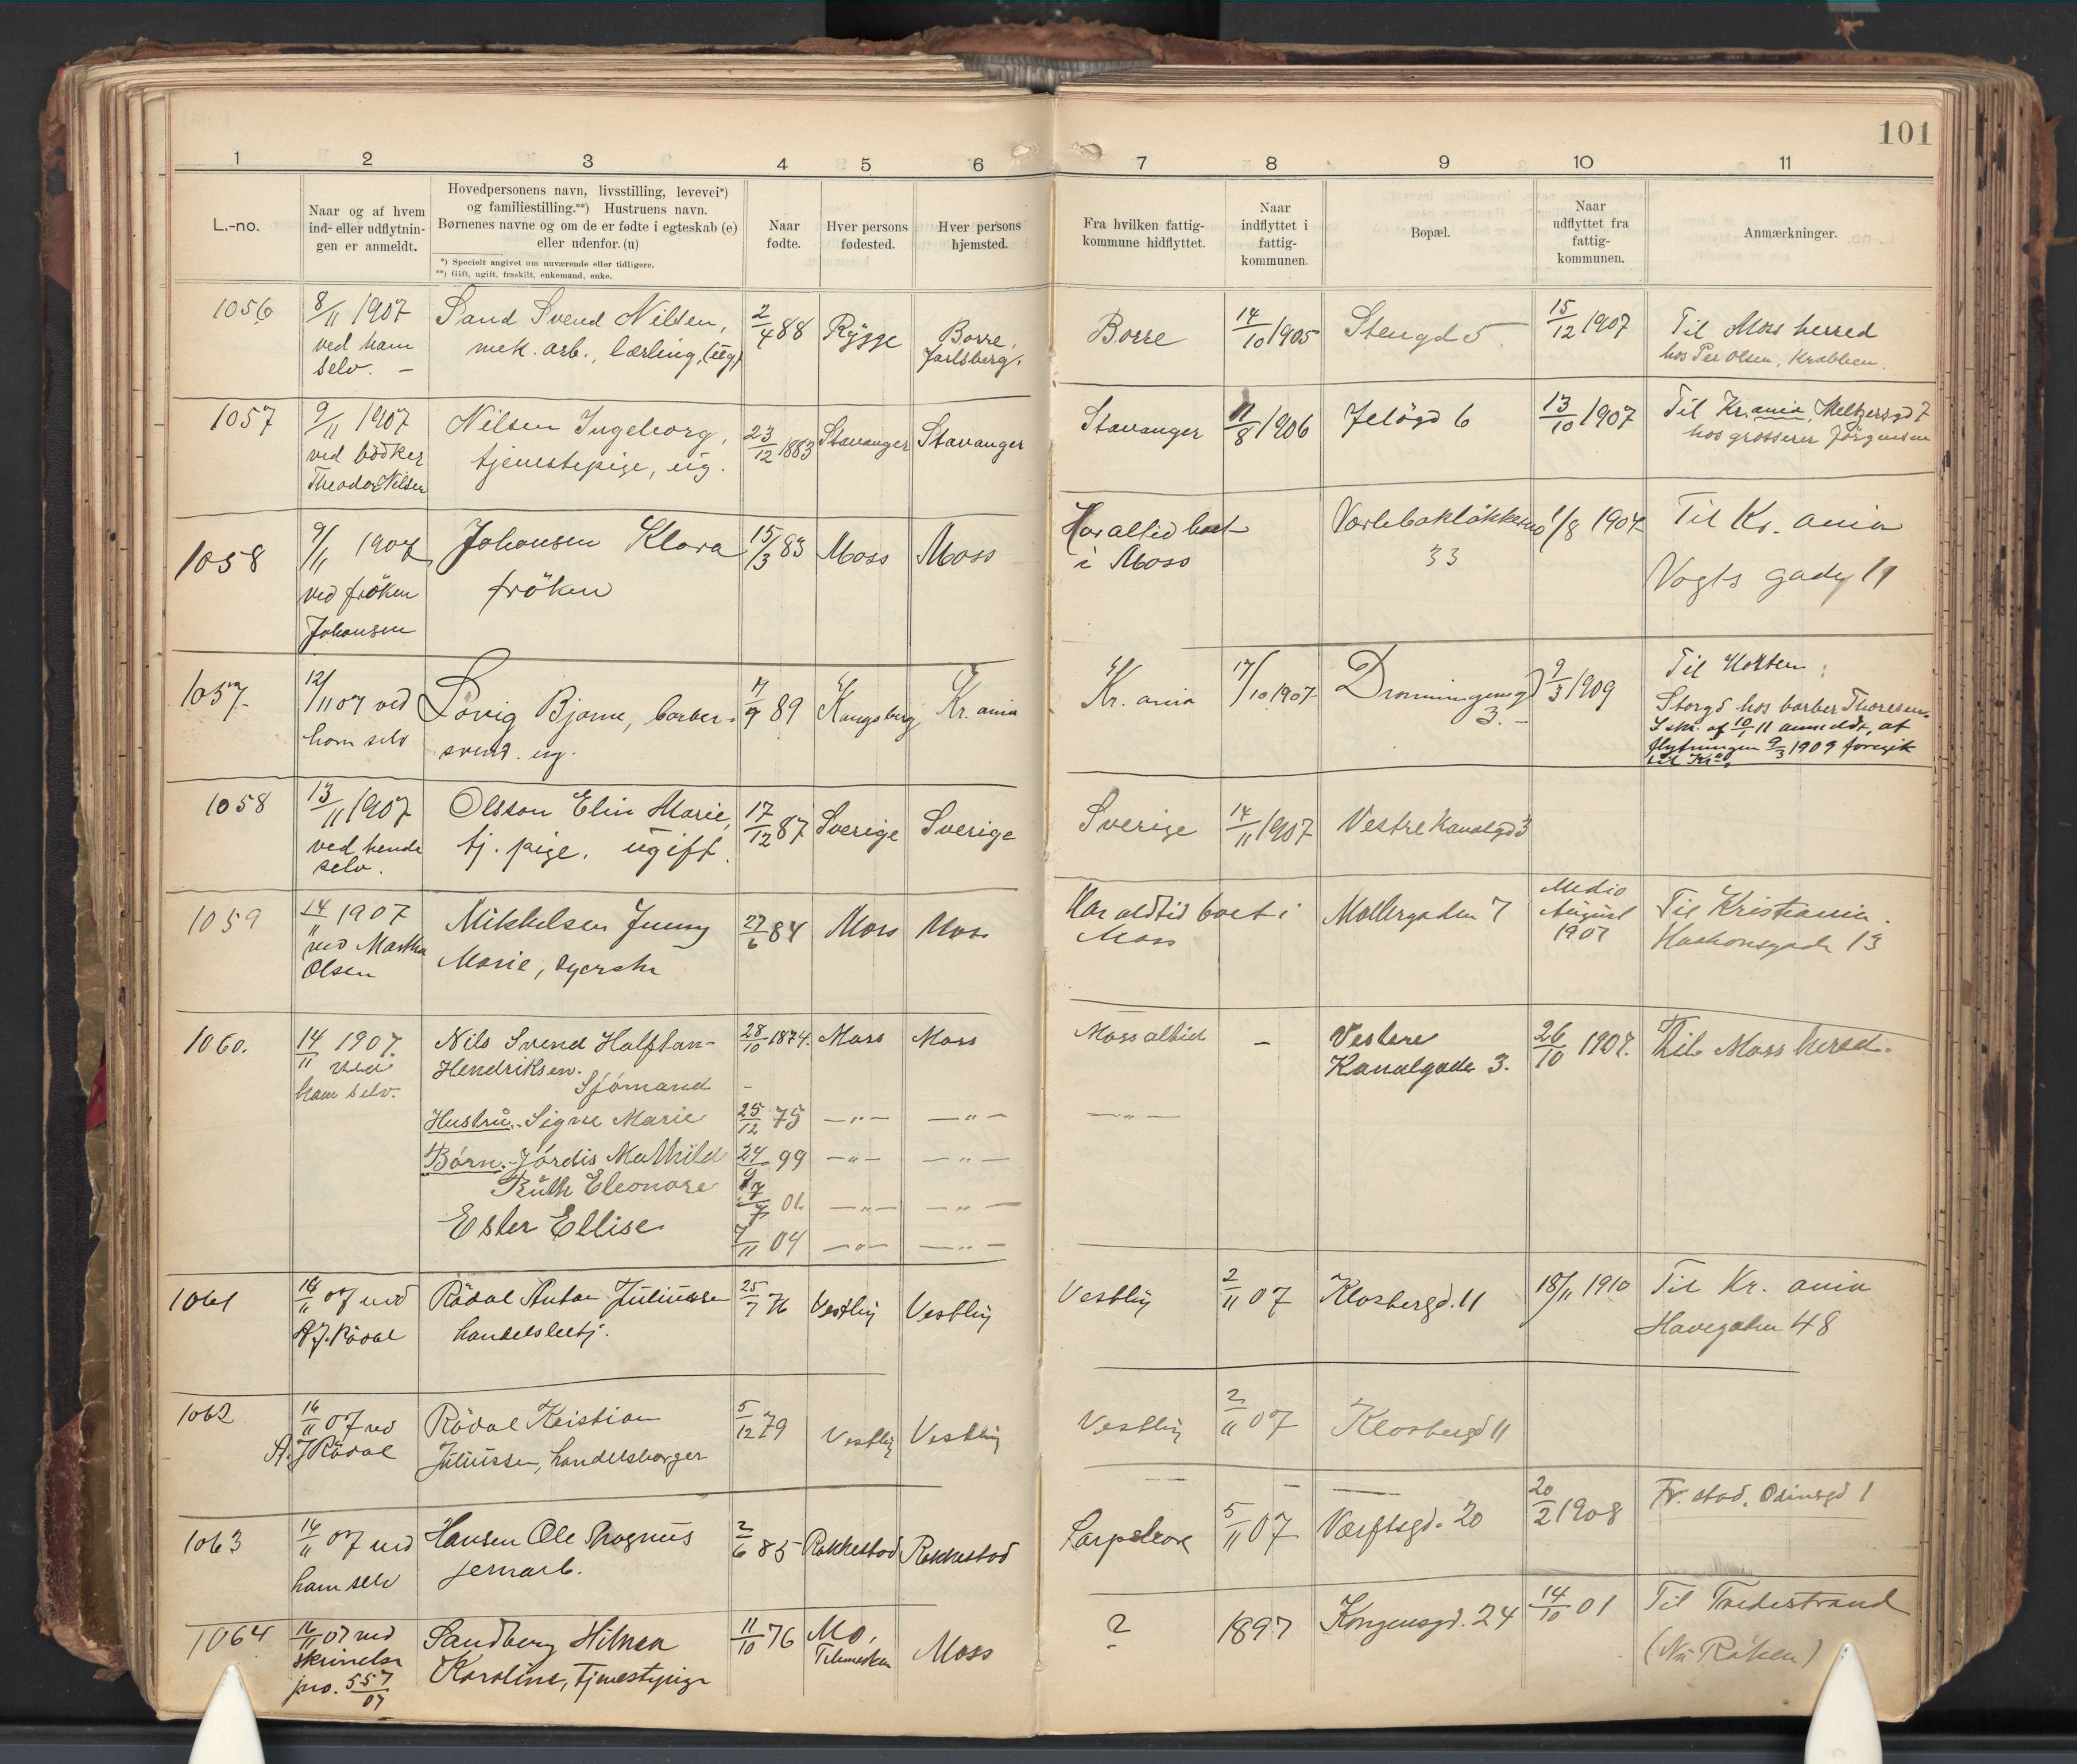 101
1 2 3 4 5 6 7 8 9 10 11
L.-no.
Naar og af hvem
ind- eller udflytnin-
gen er anmeldt.
Hovedpersonens navn, livsstilling, levevei*)
og familiestilling.**) Hustruens navn.
Børnenes navne og om de er fødte i egteskab (e)
eller udenfor. (u)
*) Specielt angivet om nuværende eller tidligere.
**) Gift, ugift, fraskilt, enkemand, enke.
Naar
fødte.
Hver persons
fødested.
Hver persons
hjemsted.
Fra hvilken fattig-
kommune hidflyttet.
Naar
indflyttet i
fattig-
kommunen.
Bopæl.
Naar
udflyttet fra
fattig-
kommunen.
Anmærkninger.
1056
8/11 1907
ved ham
selv. –
Sand Svend Nilsen,
mek. arb., lærling, (ug)
2/4 88
Rygge
Borre,
Jarlsberg.
Borre
14/10 1905
Stengd 5
15/12 1907
Til Moss herred
hos Per Olsen, Krabben.
1057
9/11 1907
ved bødker
Theodor Nilsen
Nilsen Ingeborg,
tjenestepige, ug.
23/12 1883
Stavanger
Stavanger
Stavanger
11/8 1906
Jeløgd 6
13/10 1907
Til Kr.ania, Meltzersgd 7
hos grosserer Jørgensen
1058
9/11 1907
ved frøken
Johansen
Johansen Klara
frøken
15/3 83
Moss
Moss
Har altid boet
i Moss
33
1/8 1907
Til Kr. ania
Vogts gade 11
1057.
12/11 07 ved
ham selv
Løvig Bjarne, barber-
svend. ug.
Kongsberg
Kr. ania
Kr. ania
17/10 1907
Dronningensgd
3. –
9/3 1909
Til Horten
Storgd hos barber Thoresen.
I skr. af 10/1 11 anmeldt, at
flytningen 9/3 1909 foregik
til Kra.
1058
13/11 1907
ved hende
selv.
Olsson Elin Marie,
tj. pige. ugift.
17/12 87
Sverige
Sverige
Sverige
14/11 1907
Vestre Kanalgd 3
1059
14/11 1907
ved Martha
Olsen
Mikkelsen Jenny
Marie, syerske
27/6 84
Moss
Moss
Har altid boet i
Moss
Møllergaden 7
Medio
August
1907
Til Kristiania.
Haakonsgade 13
1060.
14/11 1907.
ved
ham selv.
Nils Svend Halfdan-
Hendriksen.
Sjømand –
28/10 1874.
Moss
Moss
Moss altid
–
Vestere
Kanalgade 3.
26/10 1907.
Til Moss herred.
Hustru.- Signe Marie
25/12 75
–"– –"– –"–
Børn.- Jørdis Mathild
24/9 99
–"– –"–
Ruth Eleonore
01.
–"– –"–
Ester Ellise.
7/11 04
–"– –"–
1061
/11 07 ved
A. J. Rødal
Rødal Anton Juliussen
handelsbetj.
25/7 76
Vestby
Vestby
Vestby
2/11 07
Klosbergd. 11
18/11 1910
Til Kr. ania
Havegaden 48
1062
16/11 07 ved
A. J. Rødal
Rødal Kristian
Juliussen, handelsborger
5/12 79
Vestby
Vestby
Vestby
2/11 07
Klosbergd 11
1063
16/11 07 ved
ham selv
Hansen Ole Magnus
jernarb.
2/6 85
Rakkestad
Rakkestad
Sarpsborg
5/11 07
Værftsgd. 20
20/2 1908
Fr. stad. Odinsgd 1
1064
16/11 07 ved
skrivelse
jno. 557/07
Sandberg Hilma
Karoline, tjenestepige
11/10 76
Mo,
Telemarken
Moss
?
1897
Kongensgd. 24
14/10 01
Til Tvedestrand
(Nu Røken)